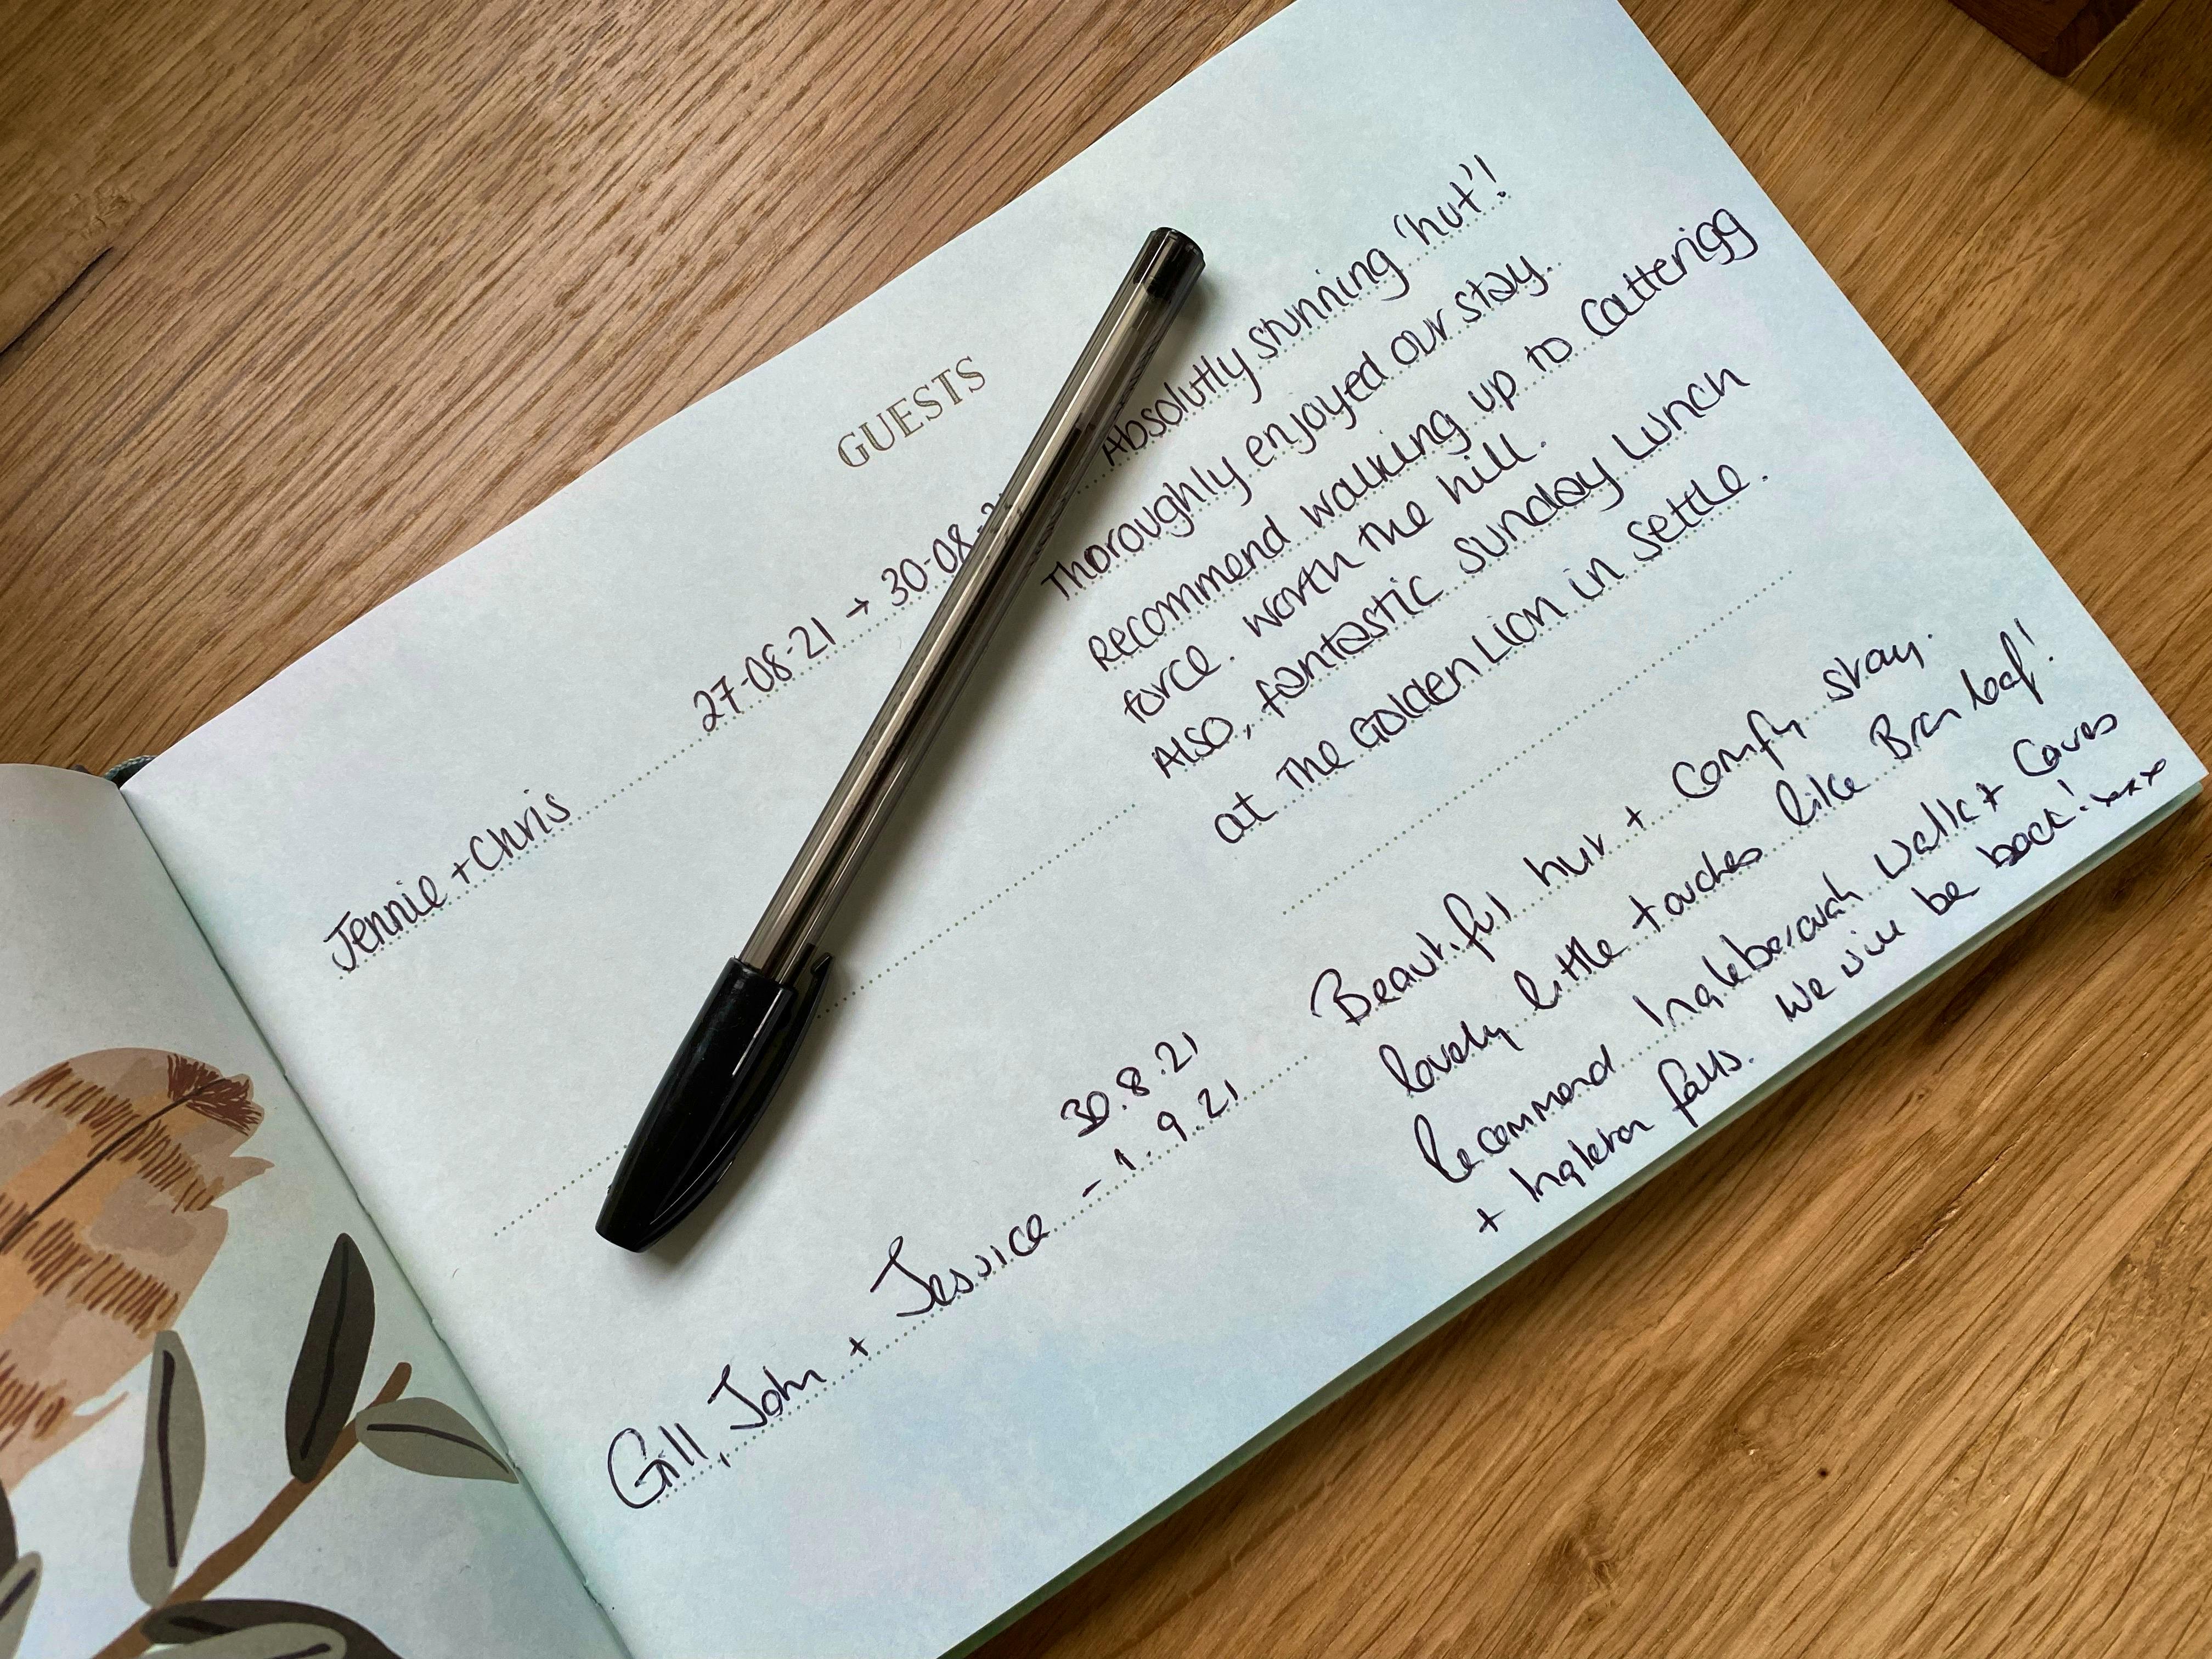 GUESTS
Jennie + Chris
27-08-21 → 30-08-2
Absolutly stunning 'hut'!
Thoroughly enjoyed our stay.
Recommend walking up to Catterigg
force. worth the hill.
Also, fantastic Sunday Lunch
at The Golden Lion in Settle.
Gill, John + Jessica
30.8.21
- 1.9.21
Beautiful hut + comfy stay.
lovely little touches like Bran loaf!
Recommend Ingleborough Walk + Caves
+ Ingleton falls. We will be back! xxx